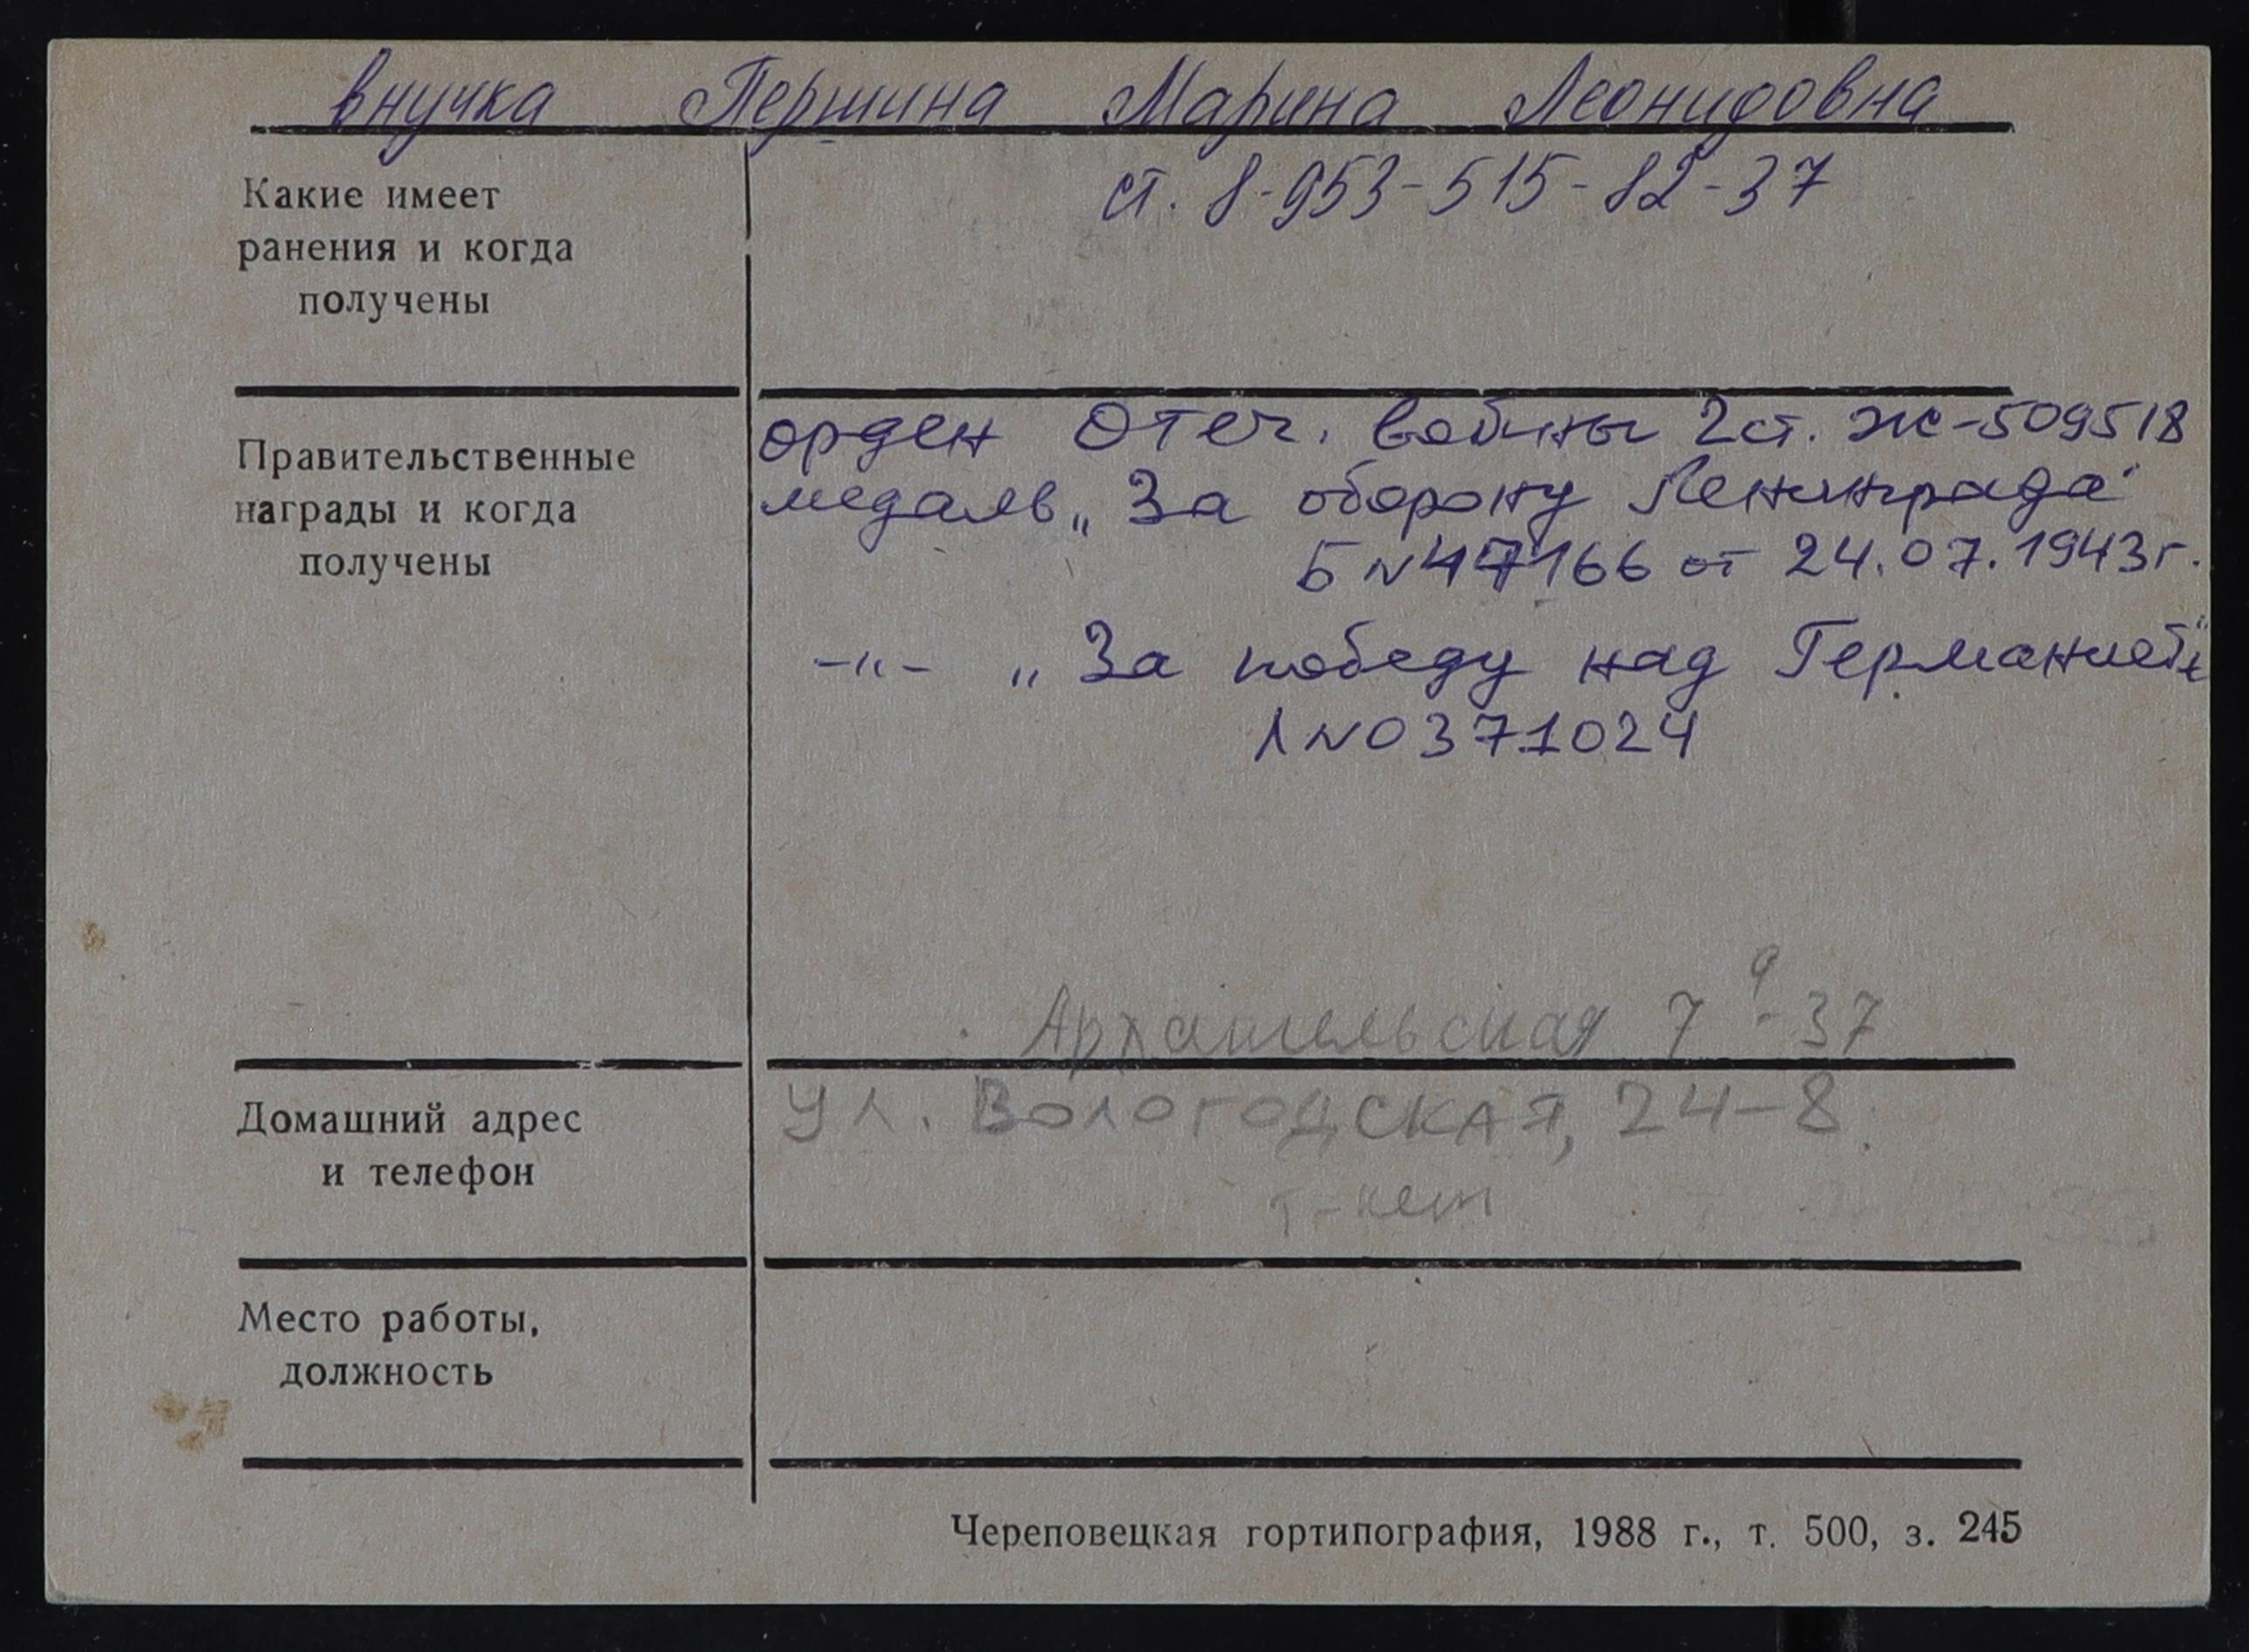 внучка Першина Марина Леонидовна
ст. 8-953-515-82-37
Какие имеет
ранения и когда
получены
Правительственные
награды и когда
получены
орден Отеч. войны 2 ст. Ж-509518
медаль „За оборону Ленинграда"
Б N 47166 от 24.07.1943 г.
-"- „За победу над Германией"
Л N 0371024
Архангельская 7а-37
Домашний адрес
и телефон
ул. Вологодская, 24-8.
т-нет
Место работы,
должность
Череповецкая гортипография, 1988 г., т. 500, з. 245